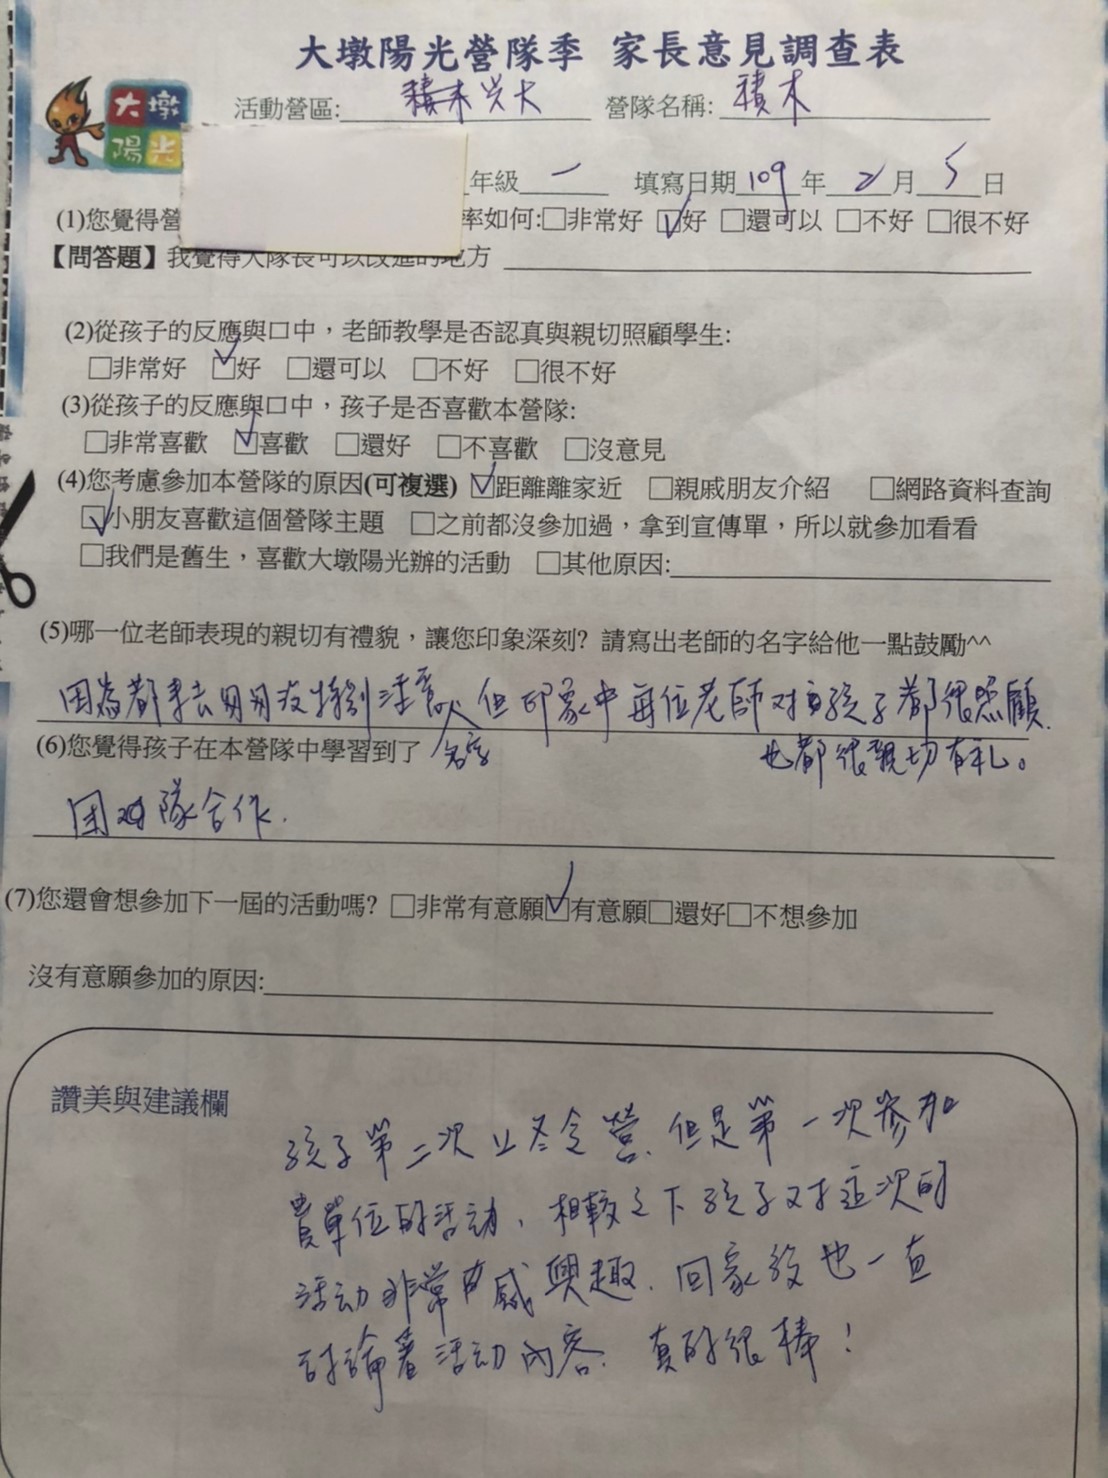 大墩陽光營隊季 家長意見調查表
大墩
陽光
活動營區: 積木兴大 營隊名稱: 積木
年級 一 填寫日期 109 年 2 月 5 日
(1)您覺得營 率如何:□非常好 ☑好 □還可以 □不好 □很不好
【問答題】我覺得大隊長可以改進的地方
(2)從孩子的反應與口中，老師教學是否認真與親切照顧學生:
□非常好 ☑好 □還可以 □不好 □很不好
(3)從孩子的反應與口中，孩子是否喜歡本營隊:
□非常喜歡 ☑喜歡 □還好 □不喜歡 □沒意見
(4)您考慮參加本營隊的原因(可複選) ☑距離離家近 □親戚朋友介紹 □網路資料查詢
☑小朋友喜歡這個營隊主題 □之前都沒參加過，拿到宣傳單，所以就參加看看
□我們是舊生，喜歡大墩陽光辦的活動 □其他原因:
(5)哪一位老師表現的親切有禮貌，讓您印象深刻? 請寫出老師的名字給他一點鼓勵^^
因為都 去 沒特別注意 但印象中每位老師對 孩子都很照顧
(6)您覺得孩子在本營隊中學習到了 名字 也都很親切有礼。
团 隊合作.
(7)您還會想參加下一屆的活動嗎? □非常有意願☑有意願□還好□不想參加
沒有意願參加的原因:
讚美與建議欄
孩子第二次上冬令營, 但是第一次參加
貴單位的活动, 相較之下孩子对這次的
活动非常 感興趣, 回家後也一直
討論著活动內容. 真的很棒!